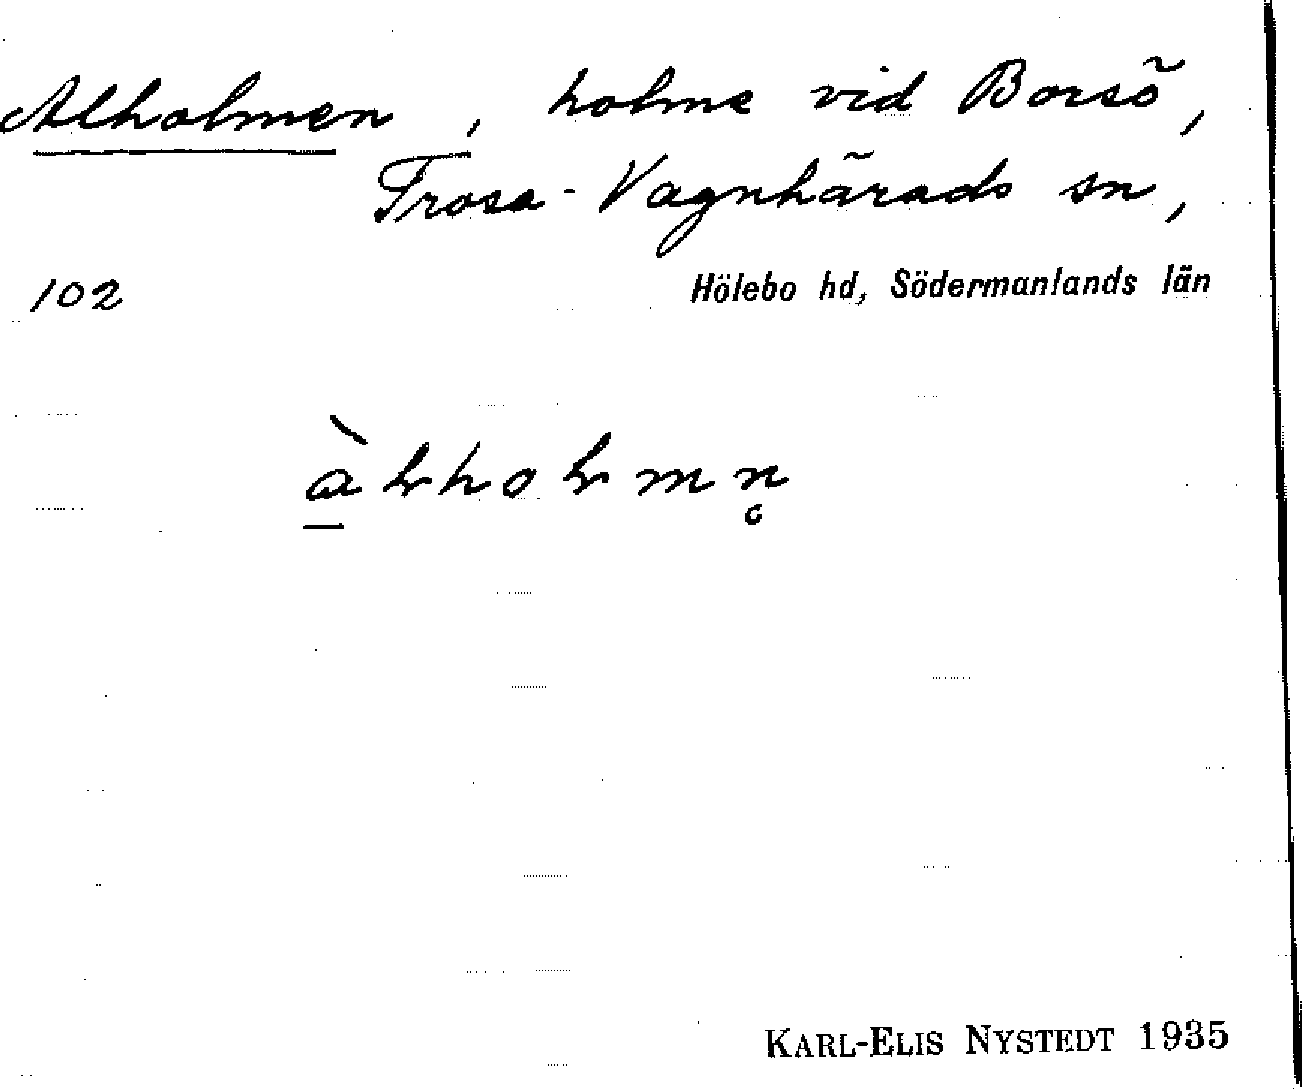 Alholmen, holme vid Borsö,
Trosa-Vagnhärads sn,
102 Hölebo hd, Södermanlands län
KARL-ELIS NYSTEDT 1935